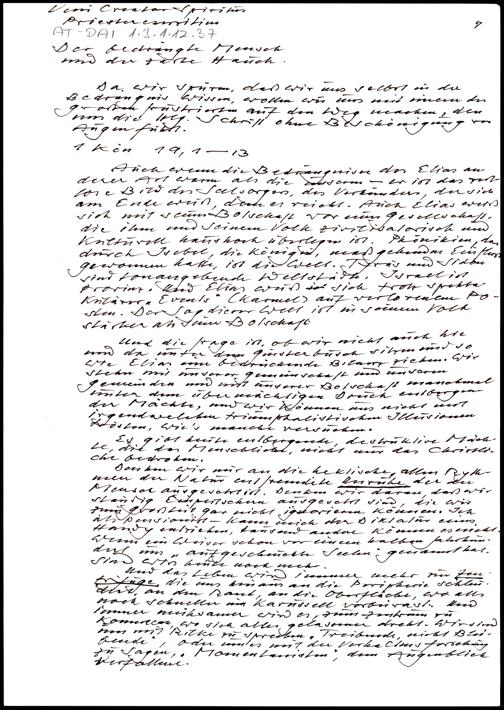 Veni Creator Spiritus
Priesterexerzitien
AT-DAI 1.3.1.12.37
Der bedrängte Mensch
und der zarte Hauch.
Da wir spüren, daß wir uns selbst in der
Bedrängnis wissen, wollen wir uns mit einem der
großen Frustrierten auf den Weg machen, den
uns die Hlg. Schrift ohne Beschönigung vor
Augen führt.
1 Kön 19,1—13
Auch wenn die Bedrängnisse des Elias an
derer Art waren als die unseren – er ist das
Bild des Seelsorgers, des Verkünders, der sich
am Ende weiß, dem es reicht. Auch Elias weiß
sich mit seiner Botschaft vor einer Gesellschaft,
die ihm und seinem Volk zivilisatorisch und
kulturell haushoch überlegen ist. Phönikien, das
durch Isebel, die Königin, maßgebenden Einfluss
gewonnen hatte, ist die Welt. Tyros und Sidon
sind tonangebende Weltstädte, Israel ist
Provinz. Und Elias weiß sich trotz
"Events" (Karmel) auf verlorenem Po-
sten. Der Sog dieser Welt ist in seinem Volk
stärker als seine Botschaft
Und die Frage ist, ob wir nicht auch hie
und da unter dem Ginsterbusch sitzen und so
wie Elias eine bedrückende Bilanz ziehen. Wir
stehn mit unserer Gemeinschaft und unseren
Gemeinden und mit unserer Botschaft manchmal
unter dem übermächtigen Druck
der Mächte, und wir können uns nicht mit
irgendwelchen triumphalistischen Illusionen
trösten, wie's manche versuchen.
Es gibt heute destruktive Mäch-
te, die das Menschliche, nicht nur das Christli-
che bedrohen.
Denken wir nur an die hektische, allen Rhyth-
men der Natur entfremdete Unruhe der der
Mensch ausgesetzt ist. Denken wir daran daß wir
ständig ausgesetzt sind, die wir
zum Großteil gar nicht ignorieren können. Ich
als Pensionist kann mich der Diktatur eines
Handy entziehen, tausend andere können es nicht.
Wenn ein Weiser schon vor einem halben Jahrhun-
dert uns "aufgescheuchte Seelen" genannt hat.
Sind wir heute noch mehr.
Und das Leben wird immer mehr zur Zen-
trifuge, die uns hinaus an die Peripherie schleu-
dert, an den Rand, an die Oberfläche, wo alles
noch schneller am Karussell vorbeirast. Und
immer mühsamer wird es, zum Zentrum zu
kommen, wo sich alles gelassener dreht. Wir sind
nun mit Rilke zu sprechen "Treibende, nicht Blei-
bende", oder um es mit der Verhaltensforschung
zu sagen, "Momentanisten", dem Augenblick
verfallene.